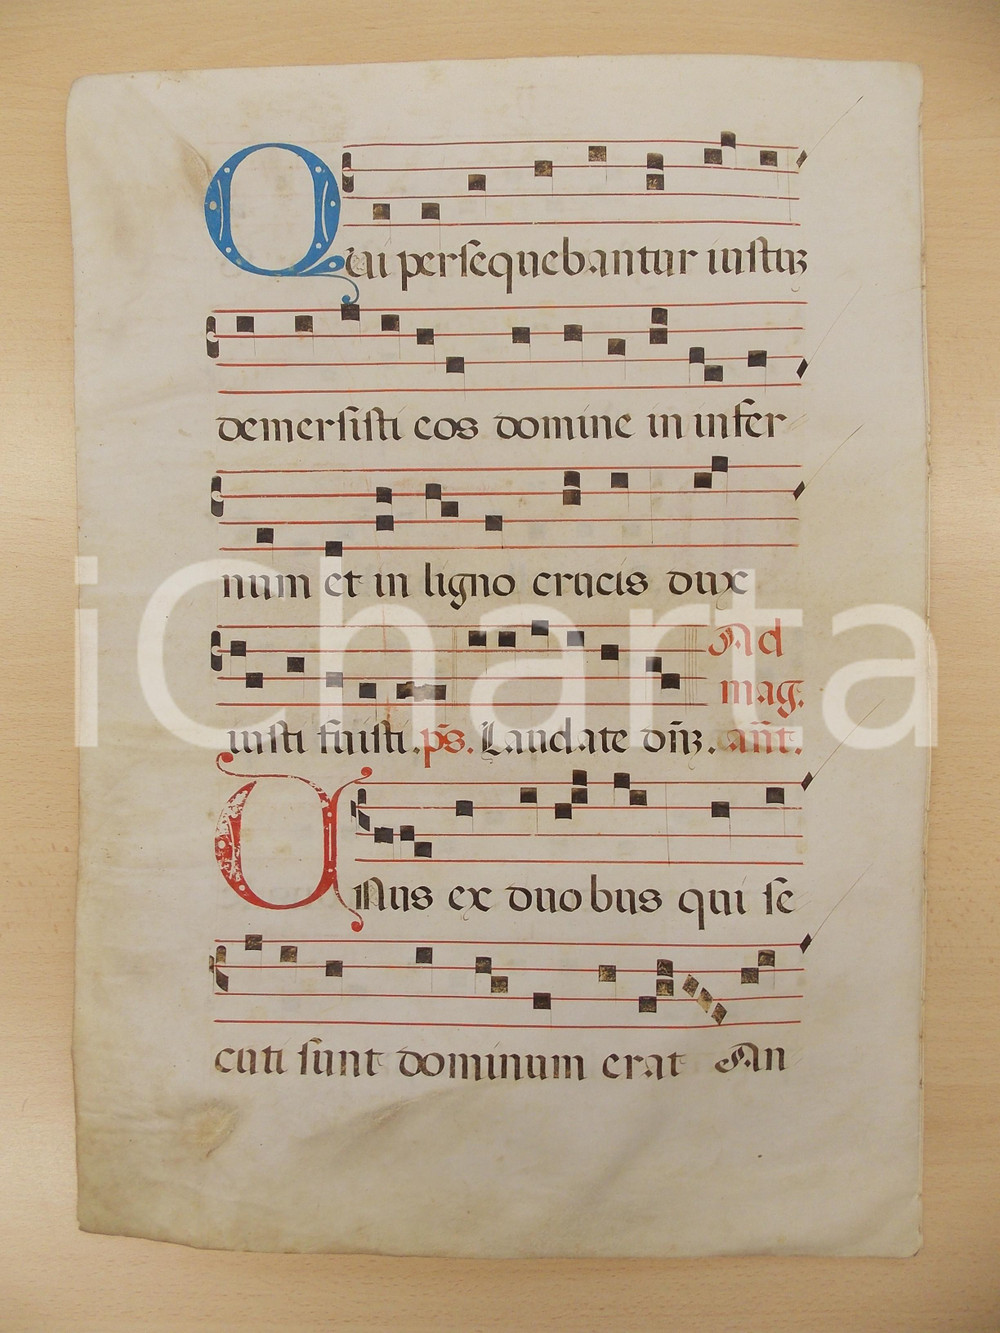 Qui persequebantur iustuz
demersisti eos domine in infer
num et in ligno crucis dux
Ad
mag.
iusti fuisti. ps. Laudate dn̄z. añt.
Unus ex duobus qui se
cuti sunt dominum erat An
iCharta